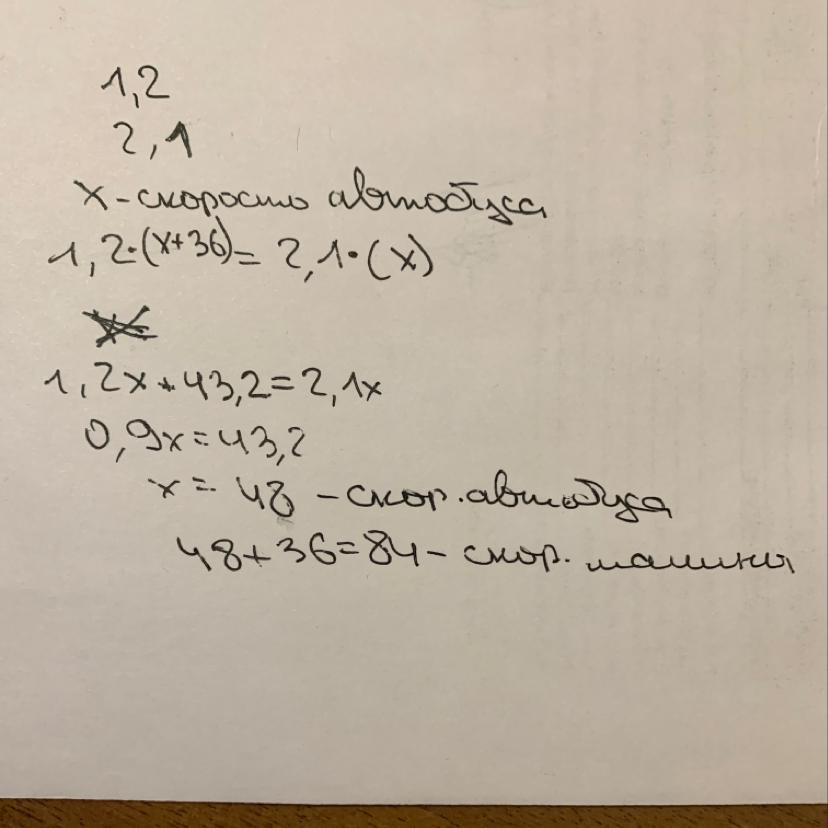 1,2
2,1
x - скорость автобуса
1,2·(x+36) = 2,1·(x)
1,2x + 43,2 = 2,1x
0,9x = 43,2
x = 48 - скор. автобуса
48 + 36 = 84 - скор. машины